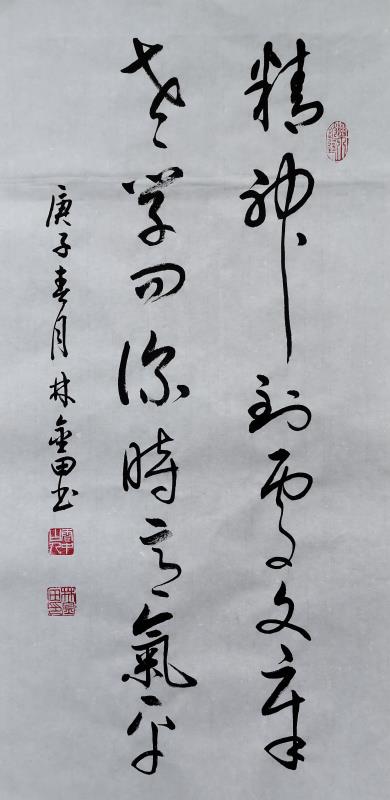 精神到處文章
老學問深時意氣平
庚子春月林金田書